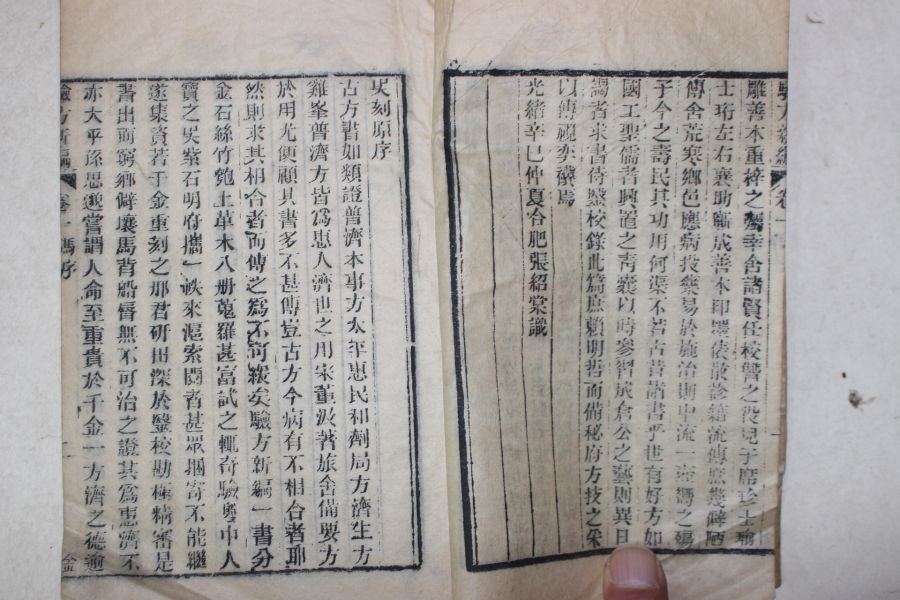 驗方新編 卷一
雕善本重梓之獨幸舍諸賢任校讐之役兒子席珍士瑜
士珩左右襄助斷成善本印墨俵散診籍流傳庶幾僻陋
傳舍荒寒鄉邑應病投藥易於施治則中流一壺嚮之瘍
子今之壽民其功用何渠不若古昔諸書乎世有好方如
國工聖儒者興置之青囊以時參習成倉公之藝則異日
謁者求書侍醫校錄此篇庶賴明哲而備秘府方技之采
以傳視奕禩焉
光緒辛巳仲夏合肥張紹棠識
吳刻原序
古方書如類證普濟本事方太平惠民和劑局方濟生方
雞峯普濟方皆爲惠人濟世之用宋董汲著旅舍備要方
於用尤便顧其書多不甚傳豈古方今病有不相合者耶
然則求其相合者而傳之爲不可緩矣驗方新編一書分
金石絲竹匏土草木八册蒐羅甚富試之輒奇驗粵中人
寶之吳紫石明府攜一帙來滬索閱者甚眾捆寄不能繼
遂集資若干金重刻之邢君研田深於醫校勘極精審是
書出而窮鄉僻壤馬背船脣無不可治之證其爲惠濟不
亦大乎孫思邈嘗謂人命至重貴於千金一方濟之德逾
驗方新編 卷一 馮序 二